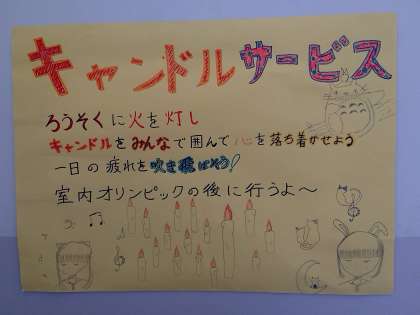 キャンドルサービス
ろうそくに火を灯し
キャンドルをみんなで囲んで心を落ち着かせよう
一日の疲れを吹き飛ばそう!
室内オリンピックの後に行うよ〜